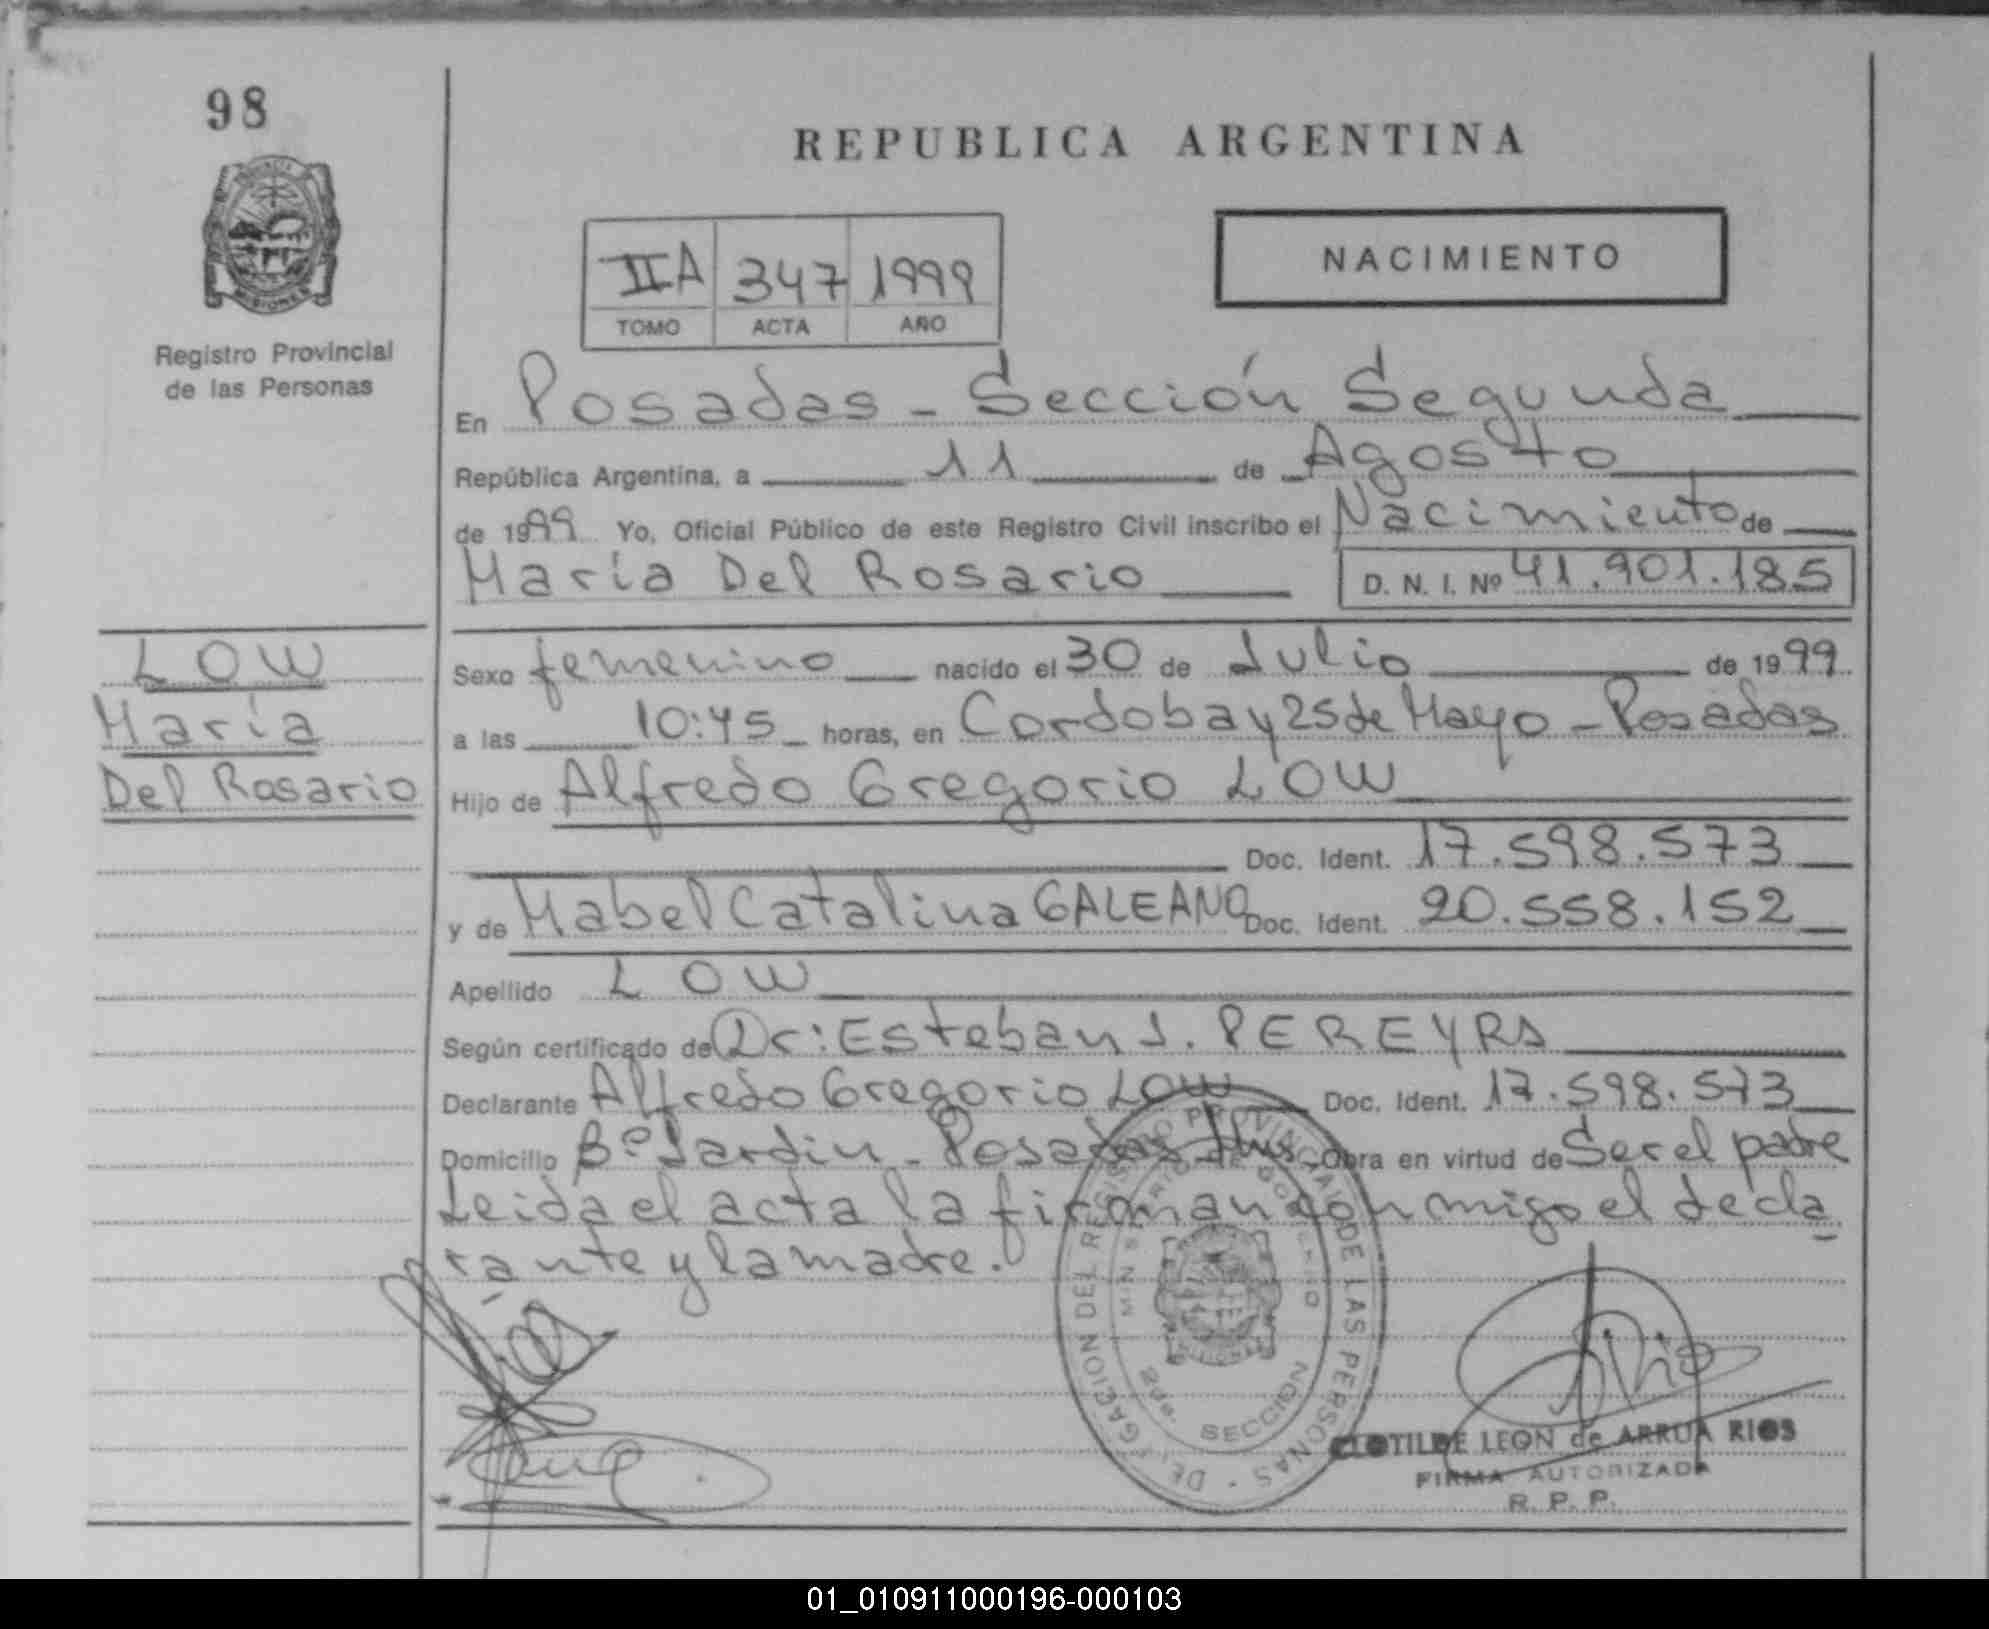 98
REPUBLICA ARGENTINA
NACIMIENTO
IIA 347 1999
TOMO ACTA AÑO
Registro Provincial
de las Personas
En Posadas - Sección Segunda
República Argentina, a 11 de Agosto
de 1999 Yo, Oficial Público de este Registro Civil inscribo el Nacimiento de
María Del Rosario D. N. I. Nº 41.901.185
LOW
María
Del Rosario
Sexo femenino nacido el 30 de Julio de 1999
a las 10:45 horas, en Cordoba y 25 de Mayo - Posadas
Hijo de Alfredo Gregorio LOW
Doc. Ident. 17.598.573
y de Mabel Catalina GALEANO Doc. Ident. 20.558.152
Apellido LOW
Según certificado de Dr: Esteban J. PEREYRA
Declarante Alfredo Gregorio LOW Doc. Ident. 17.598.573
Domicilio Bº Jardin - Posadas Obra en virtud de Ser el padre
Leida el acta la firman con migo el decla
rante y la madre.
DELEGACION DEL REGISTRO PROVINCIAL DE LAS PERSONAS
MINISTERIO DE GOBIERNO
2da. SECCION
CLOTILDE LEON de ARRUA RIOS
FIRMA AUTORIZADA
R. P. P.
01_010911000196-000103